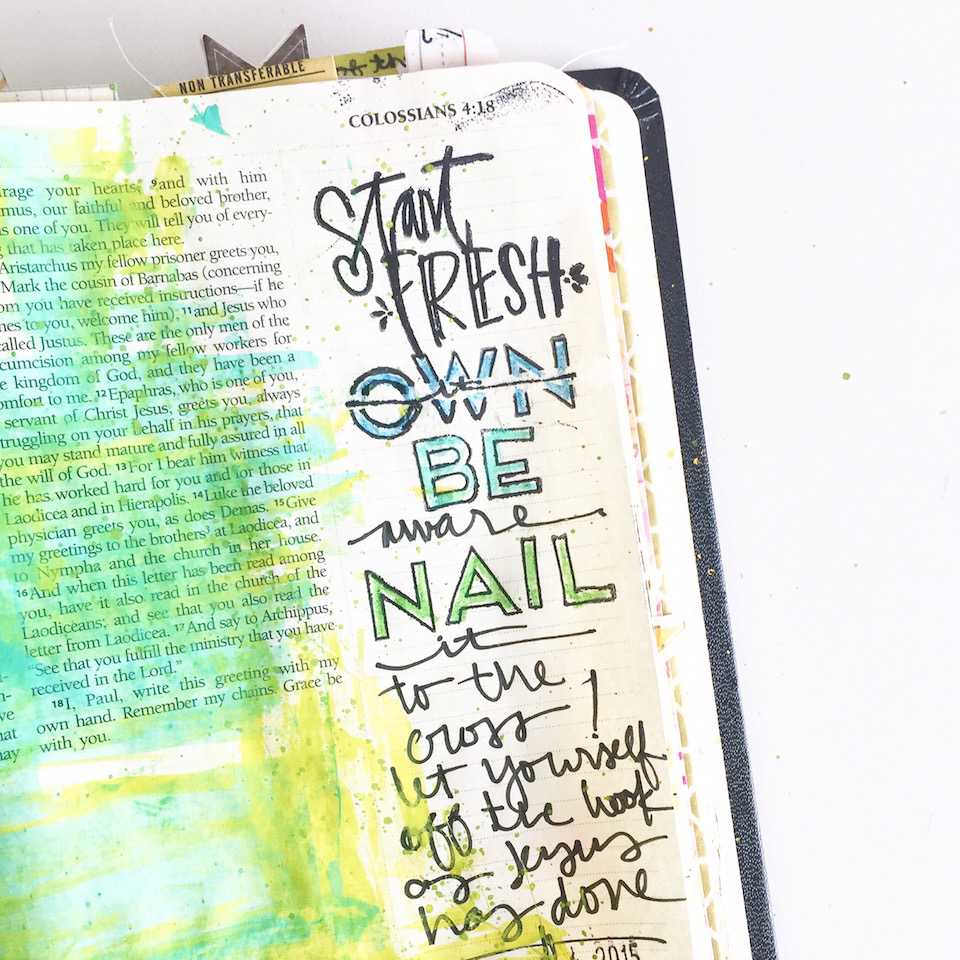 NON TRANSFERABLE
of th
COLOSSIANS 4:18
rage your hearts, 9and with him
mus, our faithful and beloved brother,
s one of you. They will tell you of every-
that has taken place here.
Aristarchus my fellow prisoner greets you,
Mark the cousin of Barnabas (concerning
om you have received instructions—if he
nes to you, welcome him), 11and Jesus who
called Justus. These are the only men of the
cumcision among my fellow workers for
e kingdom of God, and they have been a
omfort to me. 12Epaphras, who is one of you,
servant of Christ Jesus, greets you, always
truggling on your behalf in his prayers, that
you may stand mature and fully assured in all
the will of God. 13For I bear him witness that
he has worked hard for you and for those in
Laodicea and in Hierapolis. 14Luke the beloved
physician greets you, as does Demas. 15Give
my greetings to the brothers at Laodicea, and
to Nympha and the church in her house.
16And when this letter has been read among
you, have it also read in the church of the
Laodiceans; and see that you also read the
letter from Laodicea. 17And say to Archippus,
"See that you fulfill the ministry that you have
received in the Lord."
18I, Paul, write this greeting with my
own hand. Remember my chains. Grace be
with you.
Start
FRESH
OWN
it
BE
aware
NAIL
it
to the
cross!
let yourself
off the hook
as Jesus
has done
2015